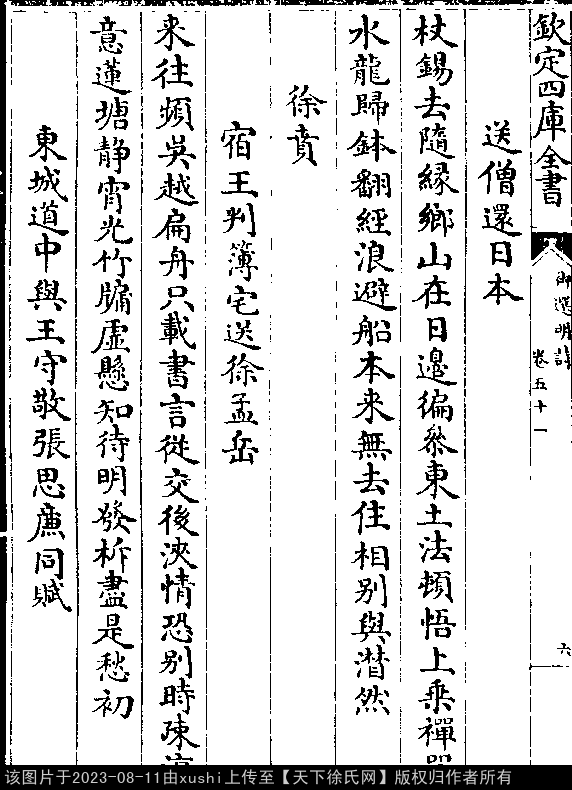 欽定四庫全書
御選明詩
卷五十一
六
送僧還日本
杖錫去隨緣鄉山在日邊徧叅東土法頓悟上乗禪
水龍歸鉢翻經浪避船本来無去住相别與潸然
徐賁
宿王判簿宅送徐孟岳
来往頻吳越扁舟只載書言從交後浹情恐别時疎
意蓮塘静宵光竹牖虚懸知待明發柝盡是愁初
東城道中與王守敬張思㢘同賦
该图片于2023-08-11由xushi上传至【天下徐氏网】版权归作者所有